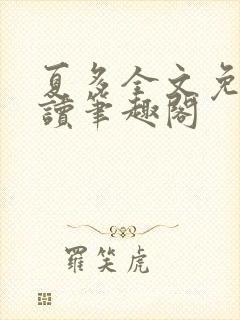 夏多全文免
讀筆趣閣
羅笑虎